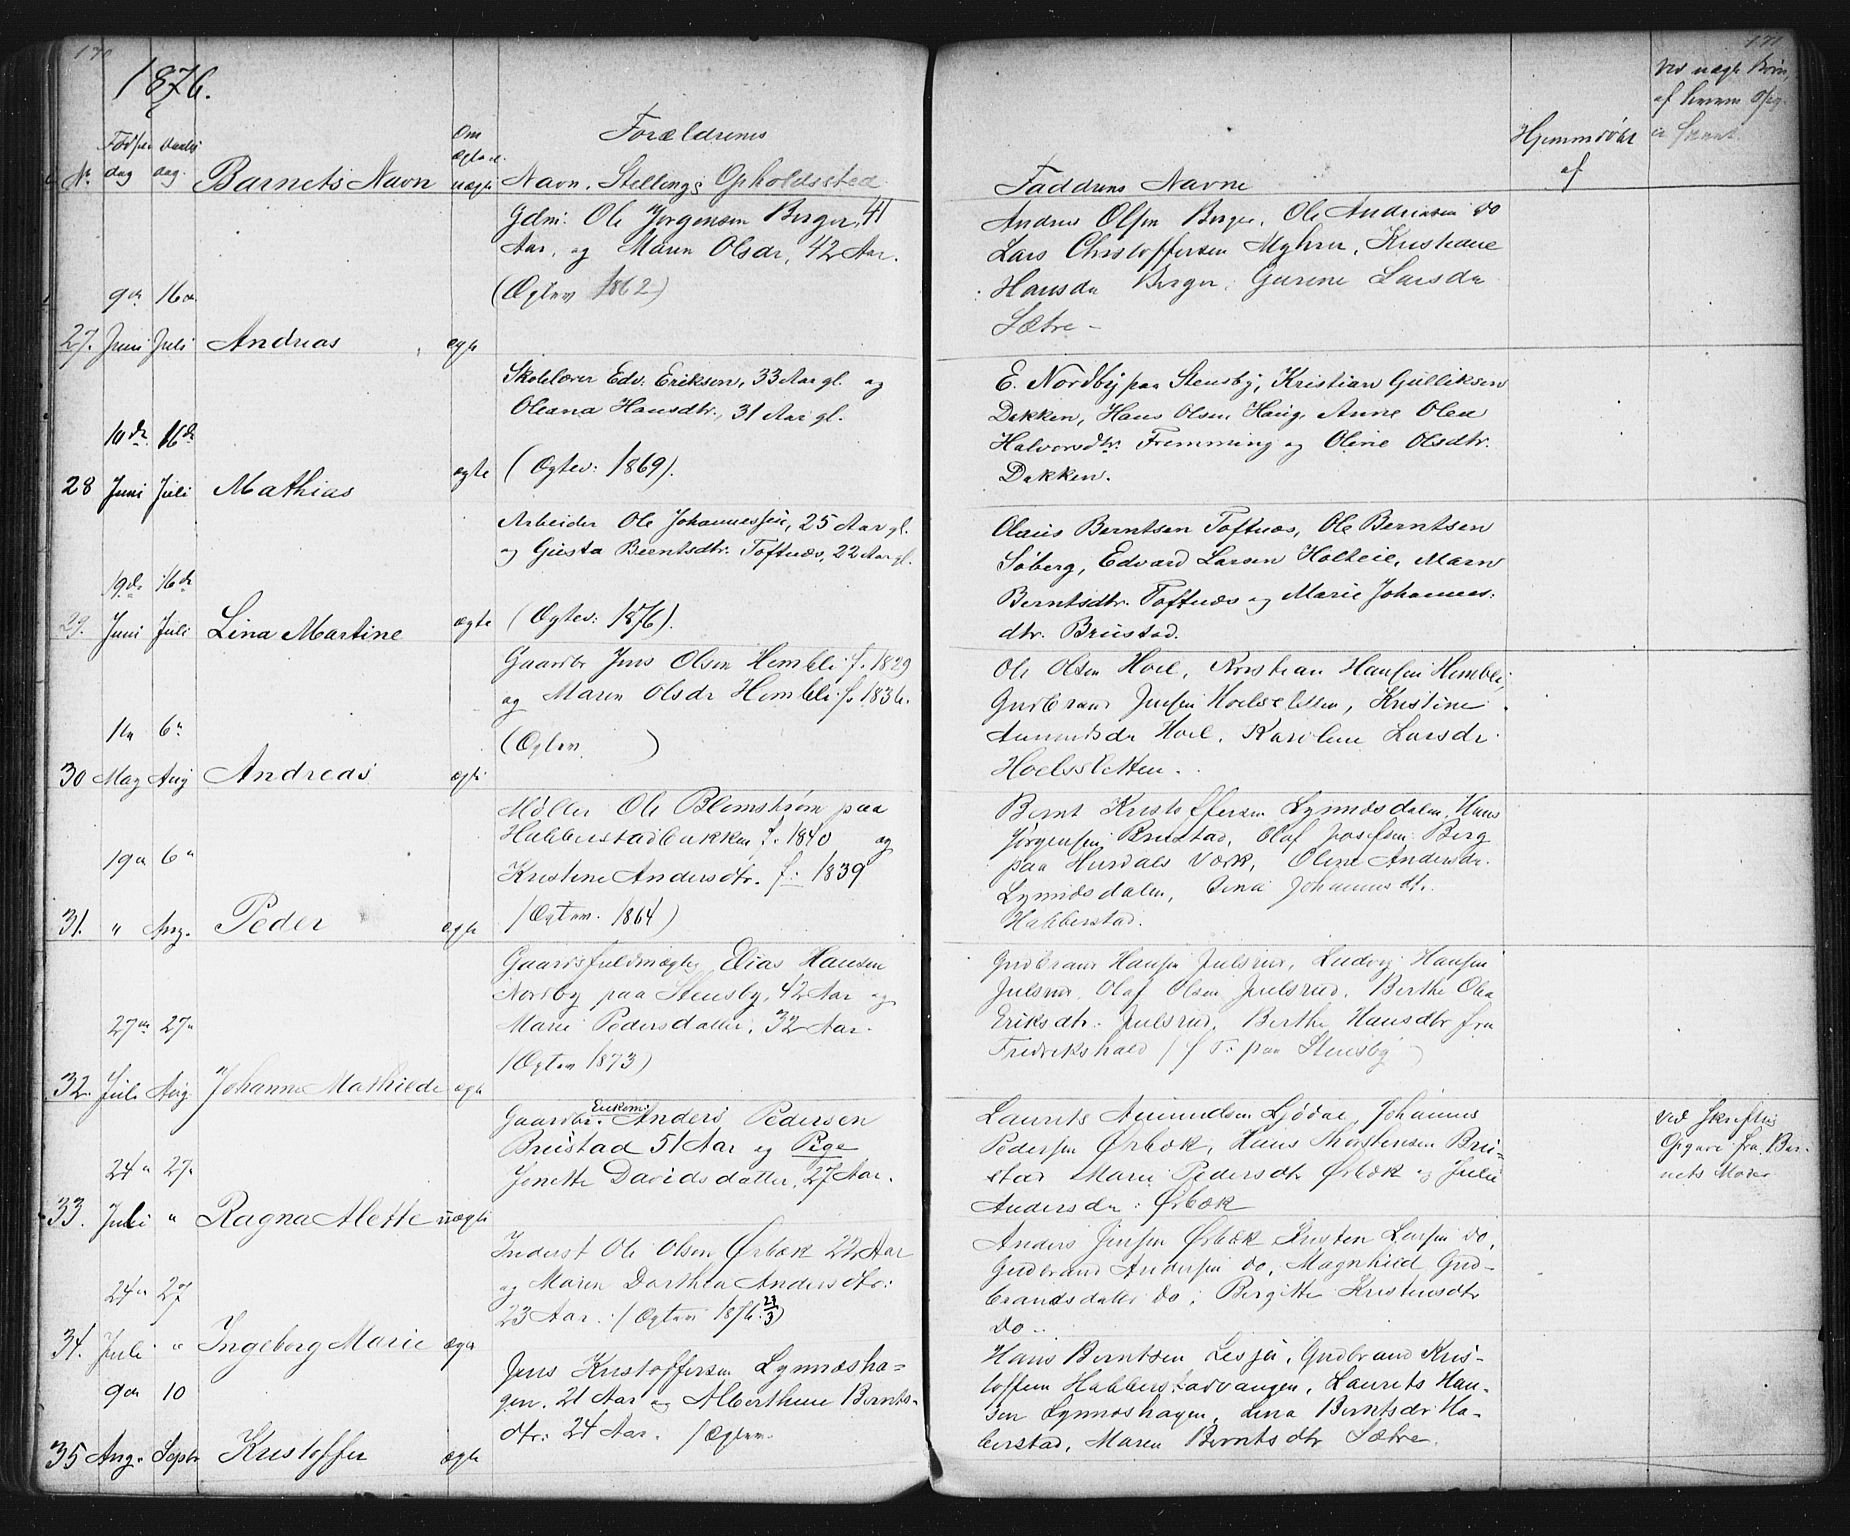 170
1876.
No
Fødsels
dag
Daabs
dag.
Barnets Navn
Om
Ægte el.
uægte
Forældrenes
Navn, Stilling, Opholdssted
27.
9de Juni
16de Juli
Andreas
ægte
Gdm: Ole Jørgensen Berger, 41
Aar, og Maren Olsdr, 42 Aar.
(Ægtev 1862)
28
10de Juni
16de Juli
Mathias
ægte
Skolelærer Edv. Eriksen, 33 Aar gl. og
Oleana Hansdtr., 31 Aar gl.
(Ægtev: 1869).
29.
19de Juni
16de Juli
Lina Martine
ægte
Arbeider Ole Johannessen, 25 Aar gl.
og Gusta Berntsdtr. Toftnæs, 22 Aar gl.
(Ægtev: 1876).
30
May
6te Aug
Andreas
ægte
Gaardbr Jens Olsen Hembli f. 1829
og Maren Olsdr Hembli f. 1836.
(Ægtev )
31.
19de "
6te Aug.
Peder
ægte
Møller Ole Blomstrøm paa
Habberstadbakken f. 1840 og
Kristine Andersdtr. f. 1839
(Ægtev. 1864)
32.
27de Juli
27de Aug
Johanne Mathilde
ægte
Gaardsfuldmægtig Elias Hansen
Nordby paa Stensby, 42 Aar og
Marie Pedersdatter, 32 Aar.
(Ægtev 1873)
33.
24de Juli
27de "
Ragna Alette
uægte
Gaardbr. Enkem: Anders Pedersen
Brustad 51 Aar og Pige
Jonette Davidsdatter, 27 Aar.
34.
24de Juli
27 "
Ingeborg Marie
ægte
Inderst Ole Olsen Ørbæk 22 Aar
og Maren Dorthea Andersdtr:
23 Aar. (Ægtev 1876. 21/3)
35
9de Aug.
10 Septbr
Kristoffer
ægte
Jens Kristoffersen Lynnæsha=
gen, 21 Aar og Alberthine Bernts=
dtr: 24 Aar. (Ægtev.
171
Faddernes Navne
Hjemmedøbt
af
Ved uægte Børn,
af hvem Opg.
er
Andreas Olsen Berger, Ole Andreasen do
Lars Christoffersen Myhrer, Kristiane
Hansdr Berger, Gurine Larsdr
Sætre -
E. Nordby paa Stensby, Kristian Gulliksen
Dakken, Hans Olsen Haug, Anne Olea
Halvorsdtr. Fremming og Oline Olsdtr.
Dakken.
Olaus Berntsen Toftnæs, Ole Berntsen
Søberg, Edvard Larsen Holteie, Maren
Berntsdtr. Toftnæs og Marie Johannes:
dtr. Brustad.
Ole Olsen Hoel, Kristian Hansen Hembli,
Gudbrand Jensen Hoelssletten, Kristine
Amundsdr Hoel, Karoline Larsdr
Hoelssletten.
Bernt Kristoffersen Lynnæsdalen, Hans
Jørgensen Brustad, Olaf Josefsen Berg
paa Hurdals Værk, Oline Andersdr.
Lynnæsdalen, Lina Johannesdtr.
Habberstad.
Gudbrand Hansen Julsrud, Ludvig Hansen
Julsrud, Olaf Olsen Julsrud, Berthe Olea
Eriksdtr. Julsrud, Berthe Hansdtr fra
Fredrikshald (f T: paa Stensby)
Laurits Amundsen Ljødal, Johannes
Pedersen Ørbæk, Hans Thorstensen Bru=
stad Marie Pedersdtr Ørbæk og Julie
Andersdr: Ørbæk
Ved skriftlig
Opgave fra Bar=
nets Moder
Anders Jensen Ørbæk Kristen Larsen do,
Gudbrand Andersen do, Magnhild Gud=
brandsdatter do, Bergitte Kristensdtr
do.
Hans Berntsen Lesja, Gudbrand Kris=
toffersen Habberstadvangen, Laurits Han=
sen Lynnæshagen, Lina Berntsdr Ha=
berstad, Maren Berntsdtr Sætre.